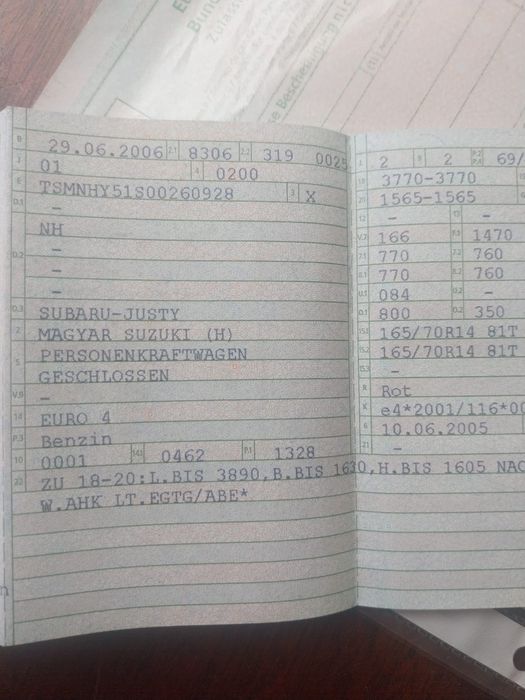 Zulass
e Bescheinigung nic
B 29.06.2006 2.1 8306 2.2 319 0025
J 01 4 0200
E TSMNHY51S00260928 3 X
D.1 -
NH
-
D.2 -
-
D.3 SUBARU-JUSTY
2 MAGYAR SUZUKI (H)
5 PERSONENKRAFTWAGEN
GESCHLOSSEN
V.9 -
14 EURO 4
P.3 Benzin
10 0001 14.1 0462 P.1 1328
22 ZU 18-20:L.BIS 3890,B.BIS 1630,H.BIS 1605 NAC
W.AHK LT.EGTG/ABE*
L 2 9 2 P.2 P.4 69/
18 3770-3770
20 1565-1565
12 - 13 -
V.7 166 F.1 1470
7.1 770 7.2 760
8.1 770 8.2 760
U.1 084 U.2 -
O.1 800 O.2 350
15.1 165/70R14 81T
15.2 165/70R14 81T
15.3 -
R Rot
K e4*2001/116*00
6 10.06.2005
21 -